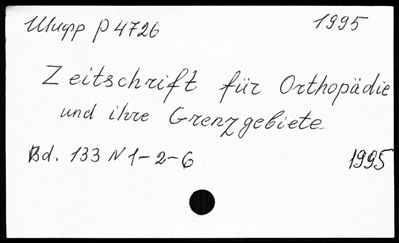 Шифр р 4726 1995
Zeitschrift für Orthopädie
und ihre Grenzgebiete
Bd. 133 N 1-2-6 1995